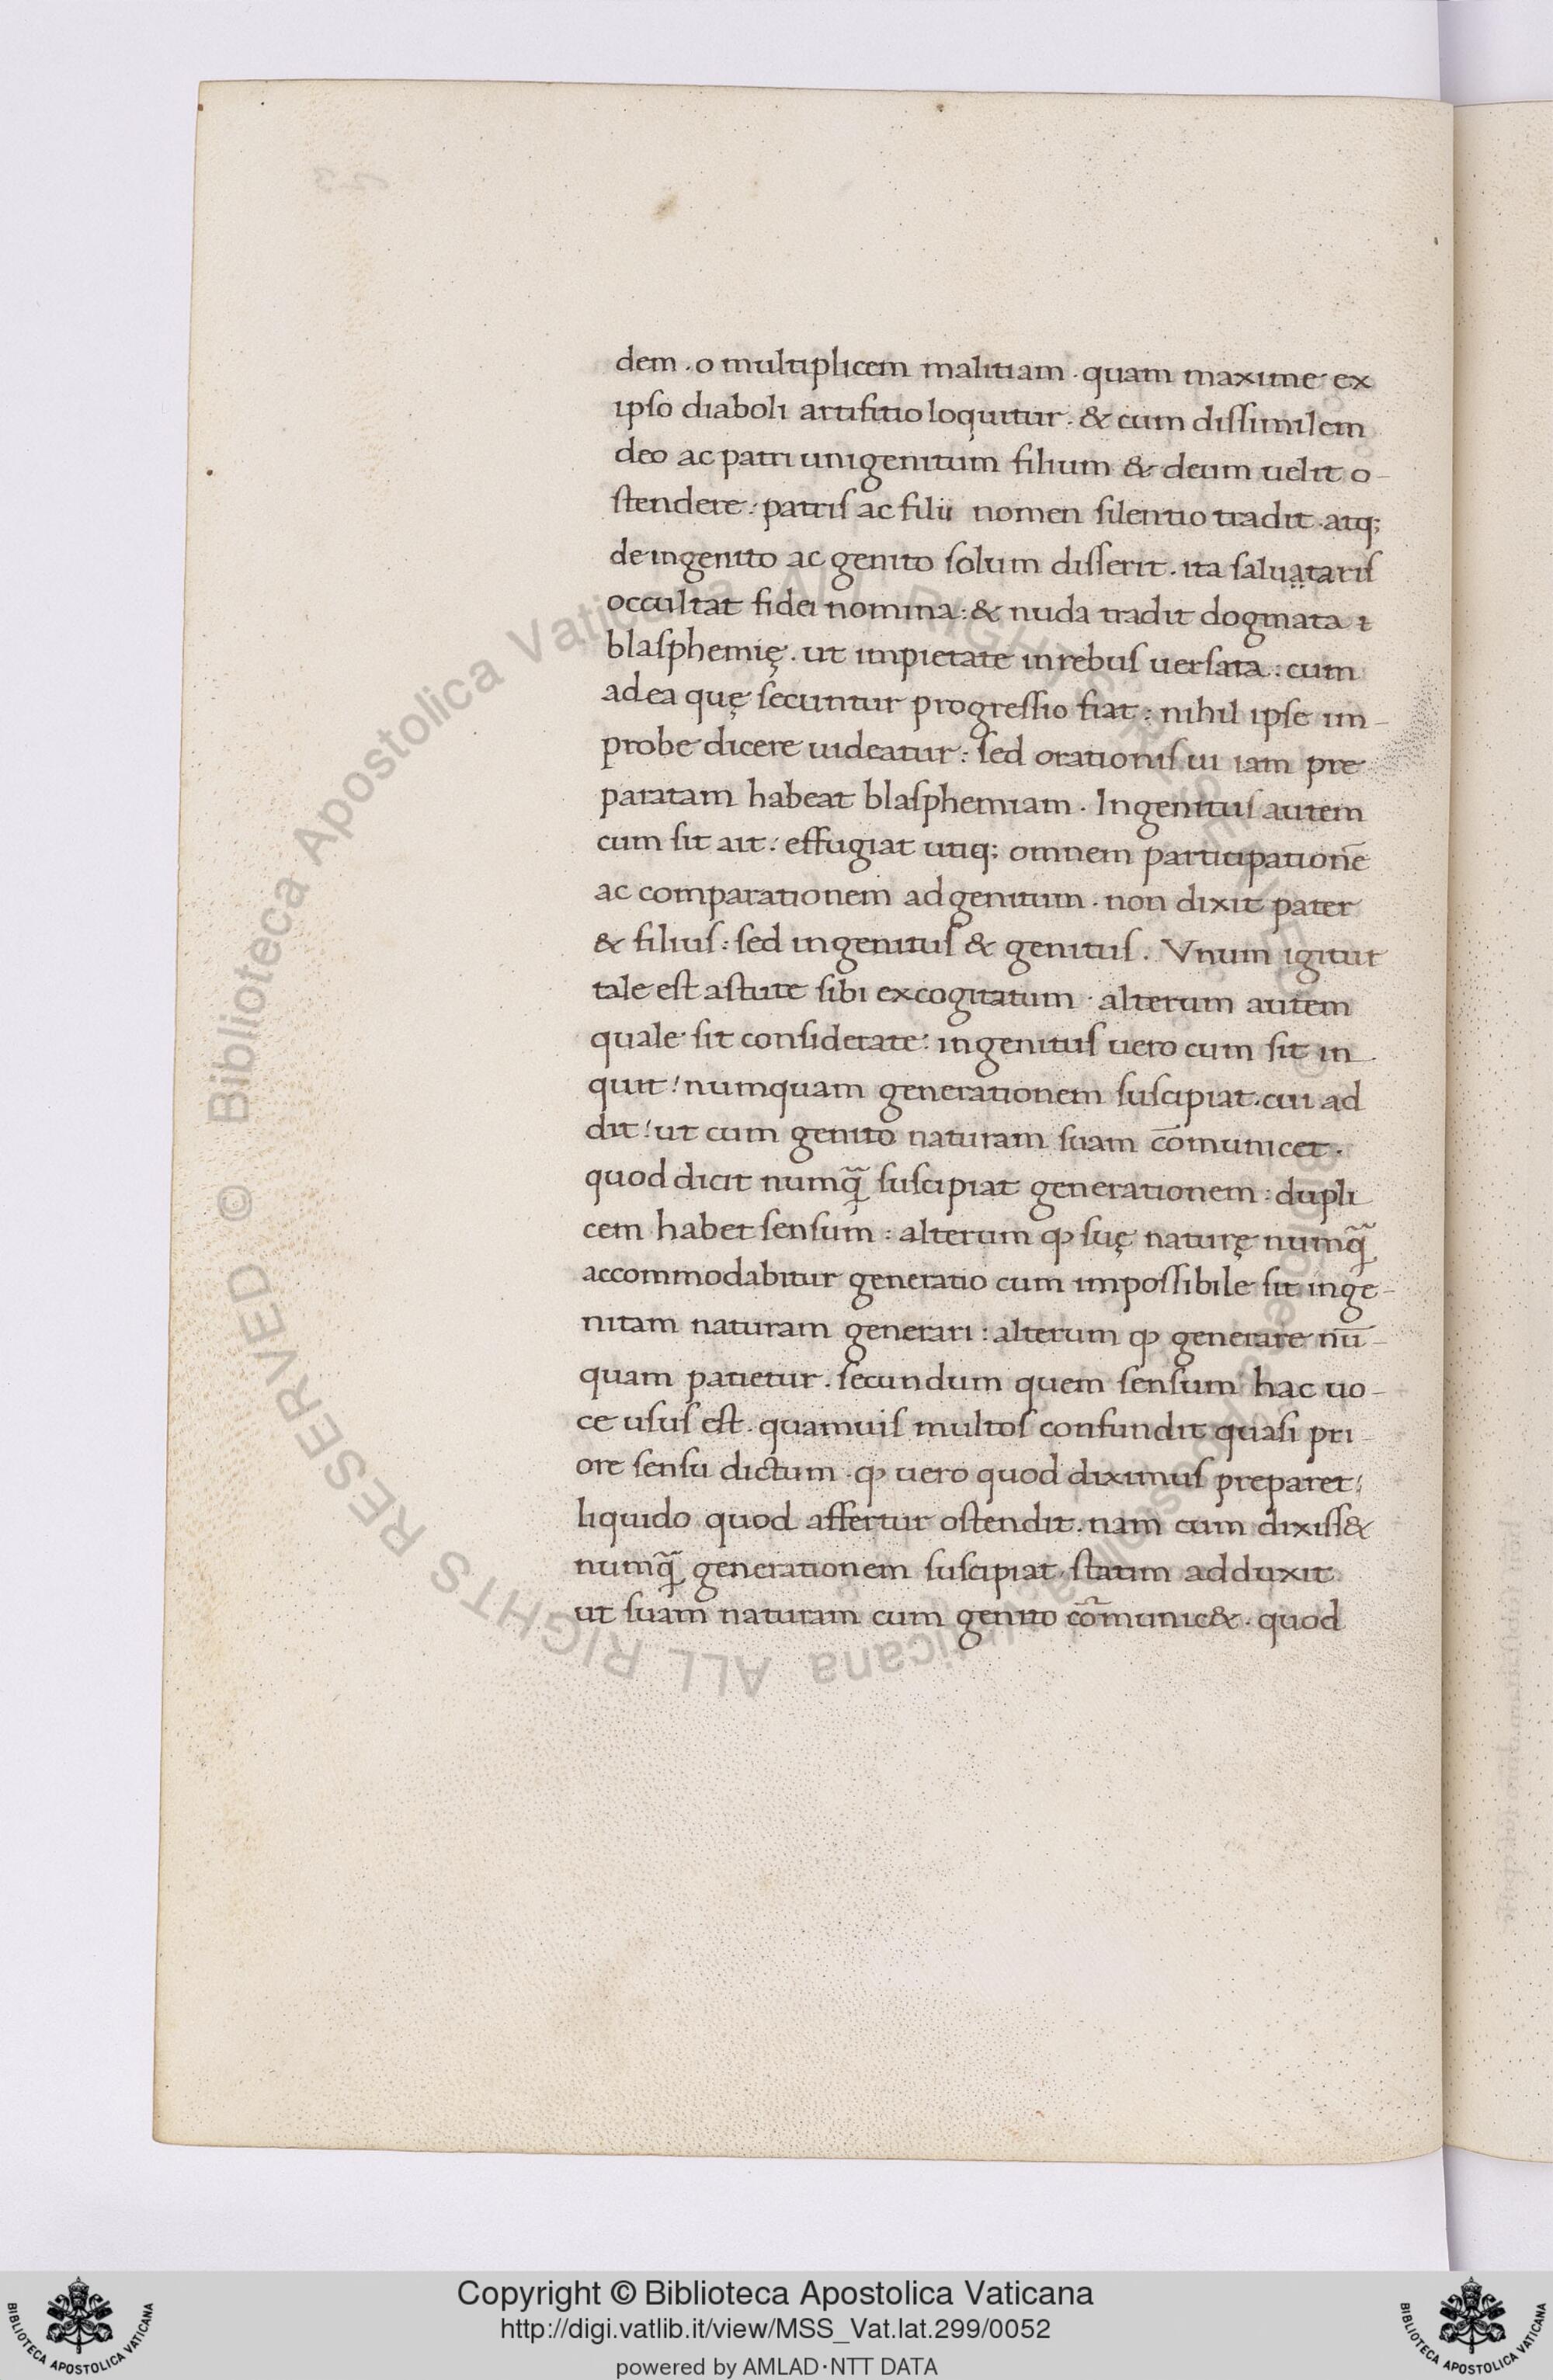 dem . o multiplicem malitiam . quam maxime ex
ipso diaboli artifitio loquitur . & cum dissimilem
deo ac patri unigenitum filium & deum uelit o-
stendere : patris ac filii nomen silentio tradit . atq;
de ingenito ac genito solum disserit . ita saluạtaris
occultat fidei nomina : & nuda tradit dogmata
blasphemię . ut impietate in rebus uersata : cum
ad ea quę secuntur progressio fiat : nihil ipse im-
probe dicere uideatur : sed orationis ui iam pre
paratam habeat blasphemiam . Ingenitus autem
cum sit ait : effugiat utiq; omnem participationē
ac comparationem ad genitum . non dixit pater
& filius : sed ingenitus & genitus . Vnum igitur
tale est astute sibi excogitatum . alterum autem
quale sit considerate : ingenitus uero cum sit in
quit ! numquam generationem suscipiat . cui ad
dit ! ut cum genito naturam suam cōmunicet .
quod dicit numꝗ̃ suscipiat generationem : dupli
cem habet sensum : alterum ꝙ suę naturę numꝗ̃
accommodabitur generatio cum impossibile sit inge-
nitam naturam generari : alterum ꝙ generare nū-
quam patietur . secundum quem sensum hac uo-
ce usus est . quamuis multos confundit quasi pri-
ore sensu dictum . ꝙ uero quod diximus preparet !
liquido quod affertur ostendit . nam cum dixiss&
numꝗ̃ generationem suscipiat . statim adduxit
ut suam naturam cum genito cōmunic& . quod
Biblioteca Apostolica Vaticana ALL RIGHTS RESERVED ©
Biblioteca Apostolica Vaticana ALL RIGHTS RESERVED ©
BIBLIOTECA APOSTOLICA VATICANA
Copyright © Biblioteca Apostolica Vaticana
http://digi.vatlib.it/view/MSS_Vat.lat.299/0052
powered by AMLAD·NTT DATA
BIBLIOTECA APOSTOLICA VATICANA